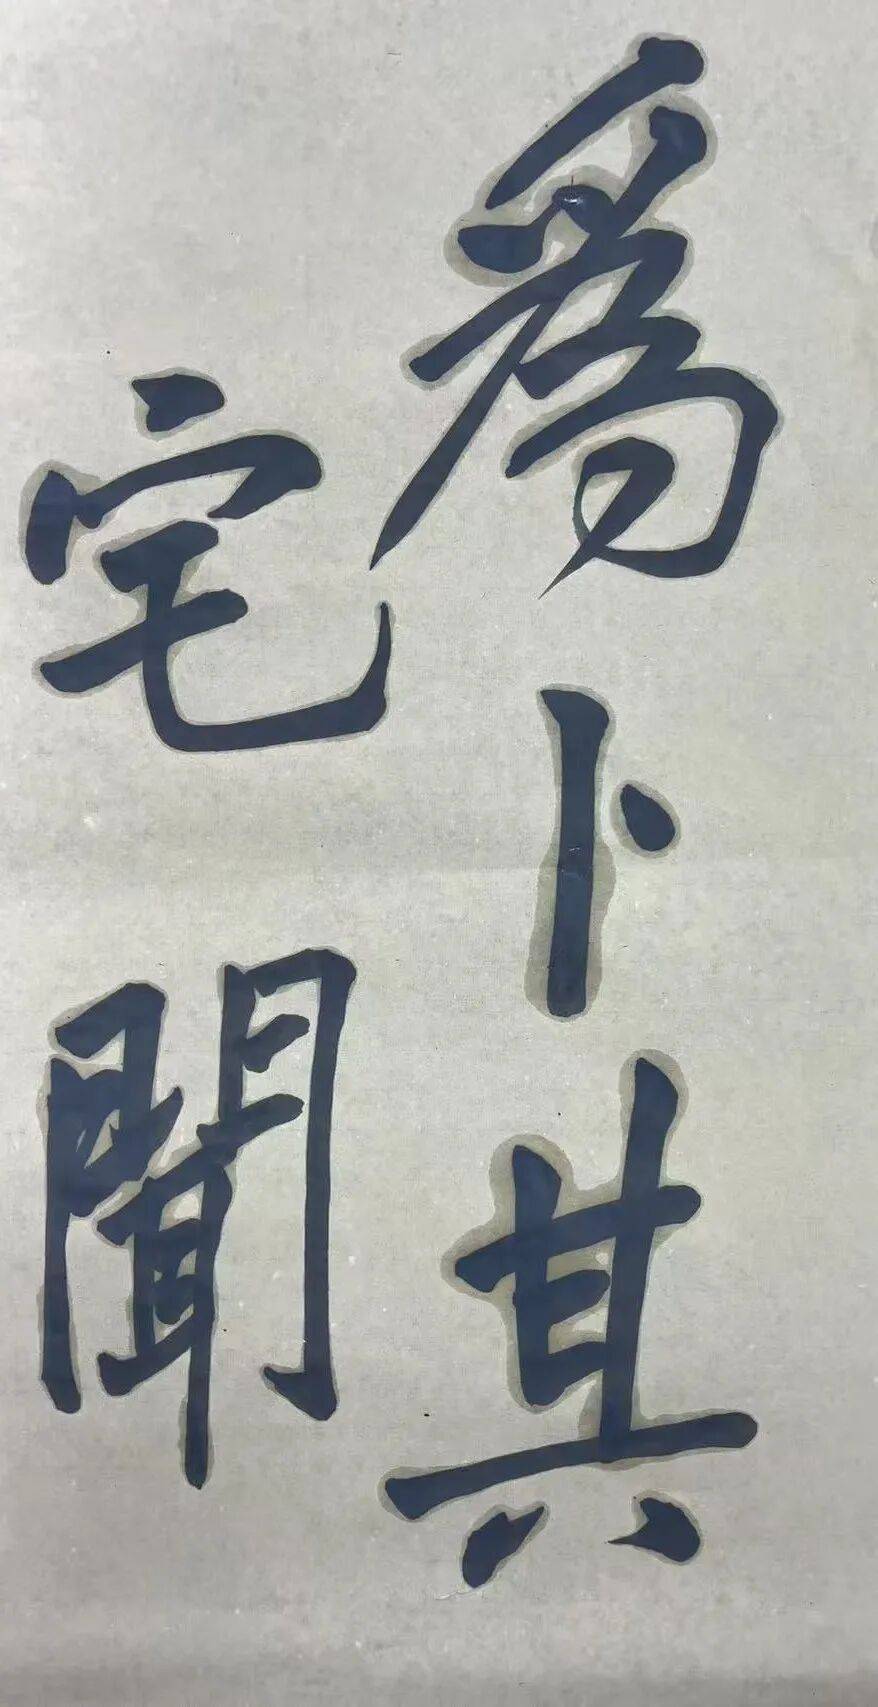 爲卜其
宅聞